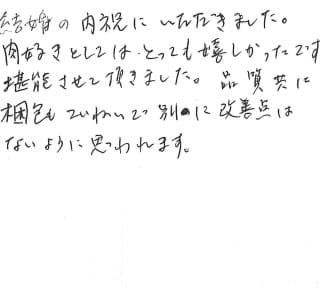 結婚の内祝にいただきました。
肉好きとしては、とっても嬉しかったです
堪能させて頂きました。品質共に
梱包もていねいで別に改善点は
ないように思われます。